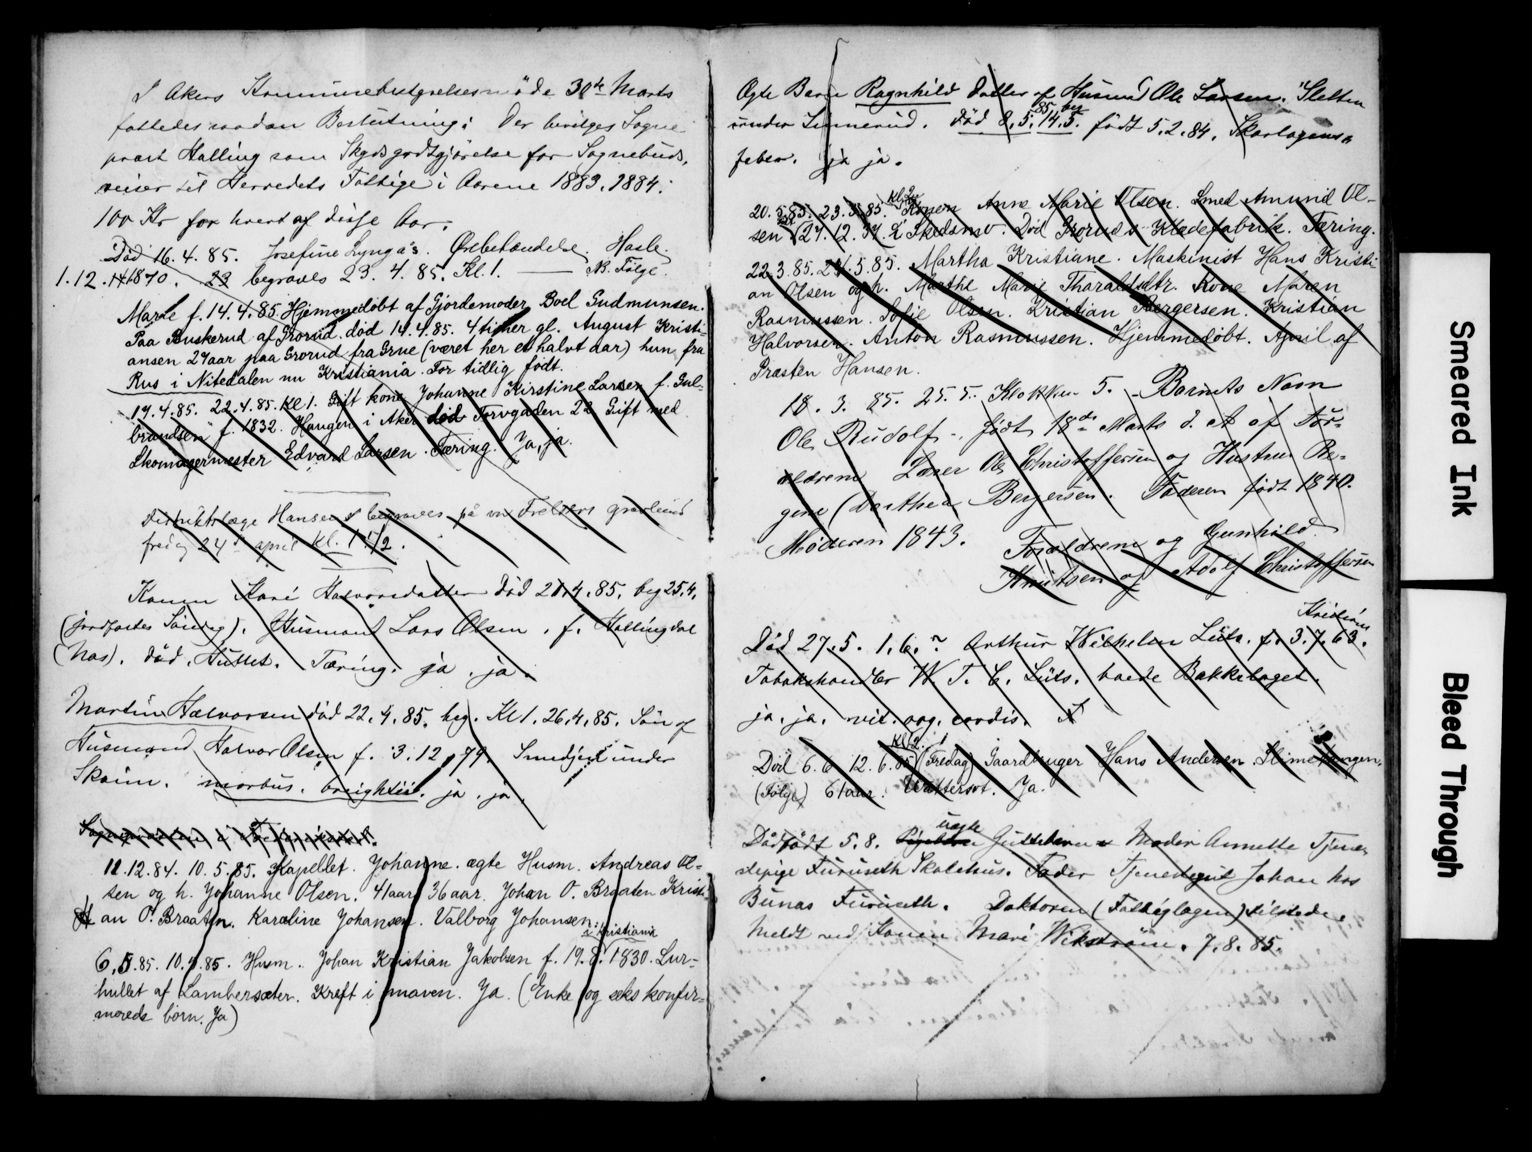 I Akers Kommunebestyrelsesmöde 30te Marts
fattedes saadan Beslutning: Der bevilges Sogne
præst Halling som Skydsgodtgjörelse for Sognebuds,
reiser til Herredets Fattige i Aarene 1883. 1884:
100 Kr for hvert af disse Aar.
Död 16.4.85. Josefine Lyngås. Örebehandelse. Hasle.
1.12. 1870. 23 begraves 23.4.85. Kl. 1. — NB. Fölge.
Marie f. 14.4.85. Hjemmedöbt af Gjordemoder Boel Gudmunsen.
Paa Buskerud af Grorud. död 14.4.85. 4 timer gl. August Kristi-
ansen 24 aar paa Grorud fra Grue (været her et halvt aar) hun fra
Rus i Nitedalen nu Kristiania. For tidlig födt.
17.4.85. 22.4.85. Kl 1. Gift kone Johanne Kirstine Larsen f. Gul-
brandsen f. 1832. Haugen i Aker död Torvgaden 22 Gift med
Skomagermester Edvard Larsen. Tæring. Ja, ja.
Distriktslæge Hansen begraves på vor Frelsers gravlund
fredag 24de april Kl. 1 1/2.
Konen Kari Halvorsdatter Död 21.4.85. beg 25.4.
(jordfæstes Söndag). Husmand Lars Olsen. f. Hallingdal
(Nas). död. Huset. Tæring. ja. ja.
Martin Halvorsen död 22.4.85. beg. Kl 1. 26.4.85. Sön af
Husmand Halvor Olsen f. 3.12.79. Smedjen under
Sköien. morbus. breightii. ja. ja.
11.12.84. 10.5.85. Kapellet. Johanne. ægte Husm. Andreas Ol-
sen og h. Johanne Olsen. 41 aar 36 aar. Johan O. Braaten Kristi-
an O. Braaten. Karoline Johansen. Valborg Johansen.
i Kristiania
6.5.85. 10.5.85. Husm. Johan Kristian Jakobsen f. 19.8.1830. Lur-
hullet af Lambersæter. Kreft i maven. Ja. (Enke og seks konfir-
merede börn. Ja)
Ægte Barn Ragnhild datter af Husmd Ole Larsen. Sletten
under Linnerud. död 8.5. 85 beg 14.5. födt 5.2.84. Skarlagens-
feber. ja ja.
20.5.85. 23.5.85. Kl 2 Konen Anne Marie Olsen. Smed Amund Ol-
sen 27.12.34. i Skedsmo. Död Grorud Klædefabrik. Tæring.
22.3.85. 24.5.85. Martha Kristiane. Maskinist Hans Kristi
an Olsen og h. Marthe Marie Tharaldsdtr. Kone Maren
Rasmussen. Sofie Olsen. Kristian Bergersen. Kristian
Halvorsen. Anton Rasmussen. Hjemmedöbt. April af
Præsten Hansen.
18.3.85. 25.5. Klokken 5. Barnets Navn
Ole Rudolf, födt 18de Marts d. A af For-
ældrene Ole Christoffersen og Hustru Be-
gene (Dorthea) Bergersen. Faderen födt 1840.
Moderen 1843. Forældrene og Gunhild
Knutsen og Adolf Christoffersen
Kristiania
Död 27.5. 1.6.? Arthur Wilhelm Lüts. f. 3.7.63.
Tobakshandler W. T. C. Lüts. boede Bakkehaget.
ja. ja. vit. org. cordis.
Kl 2
Död 6.6 12.6.85 (Fredag) Gaardbruger Hans Andersen
(Fölge) 61 aar. Wattersot. Ja.
uægte
Dödfödt 5.8. Guttebarn Moder Annette Tjene-
stepige Furuseth Skolehus. Fader Tjenestegut Johan hos
Bunæs Furuseth. Doktoren (Fattiglægen) tilstede.
Meldt ved Konen Mari Wikström. 7.8.85.
Smeared Ink
Bleed Through